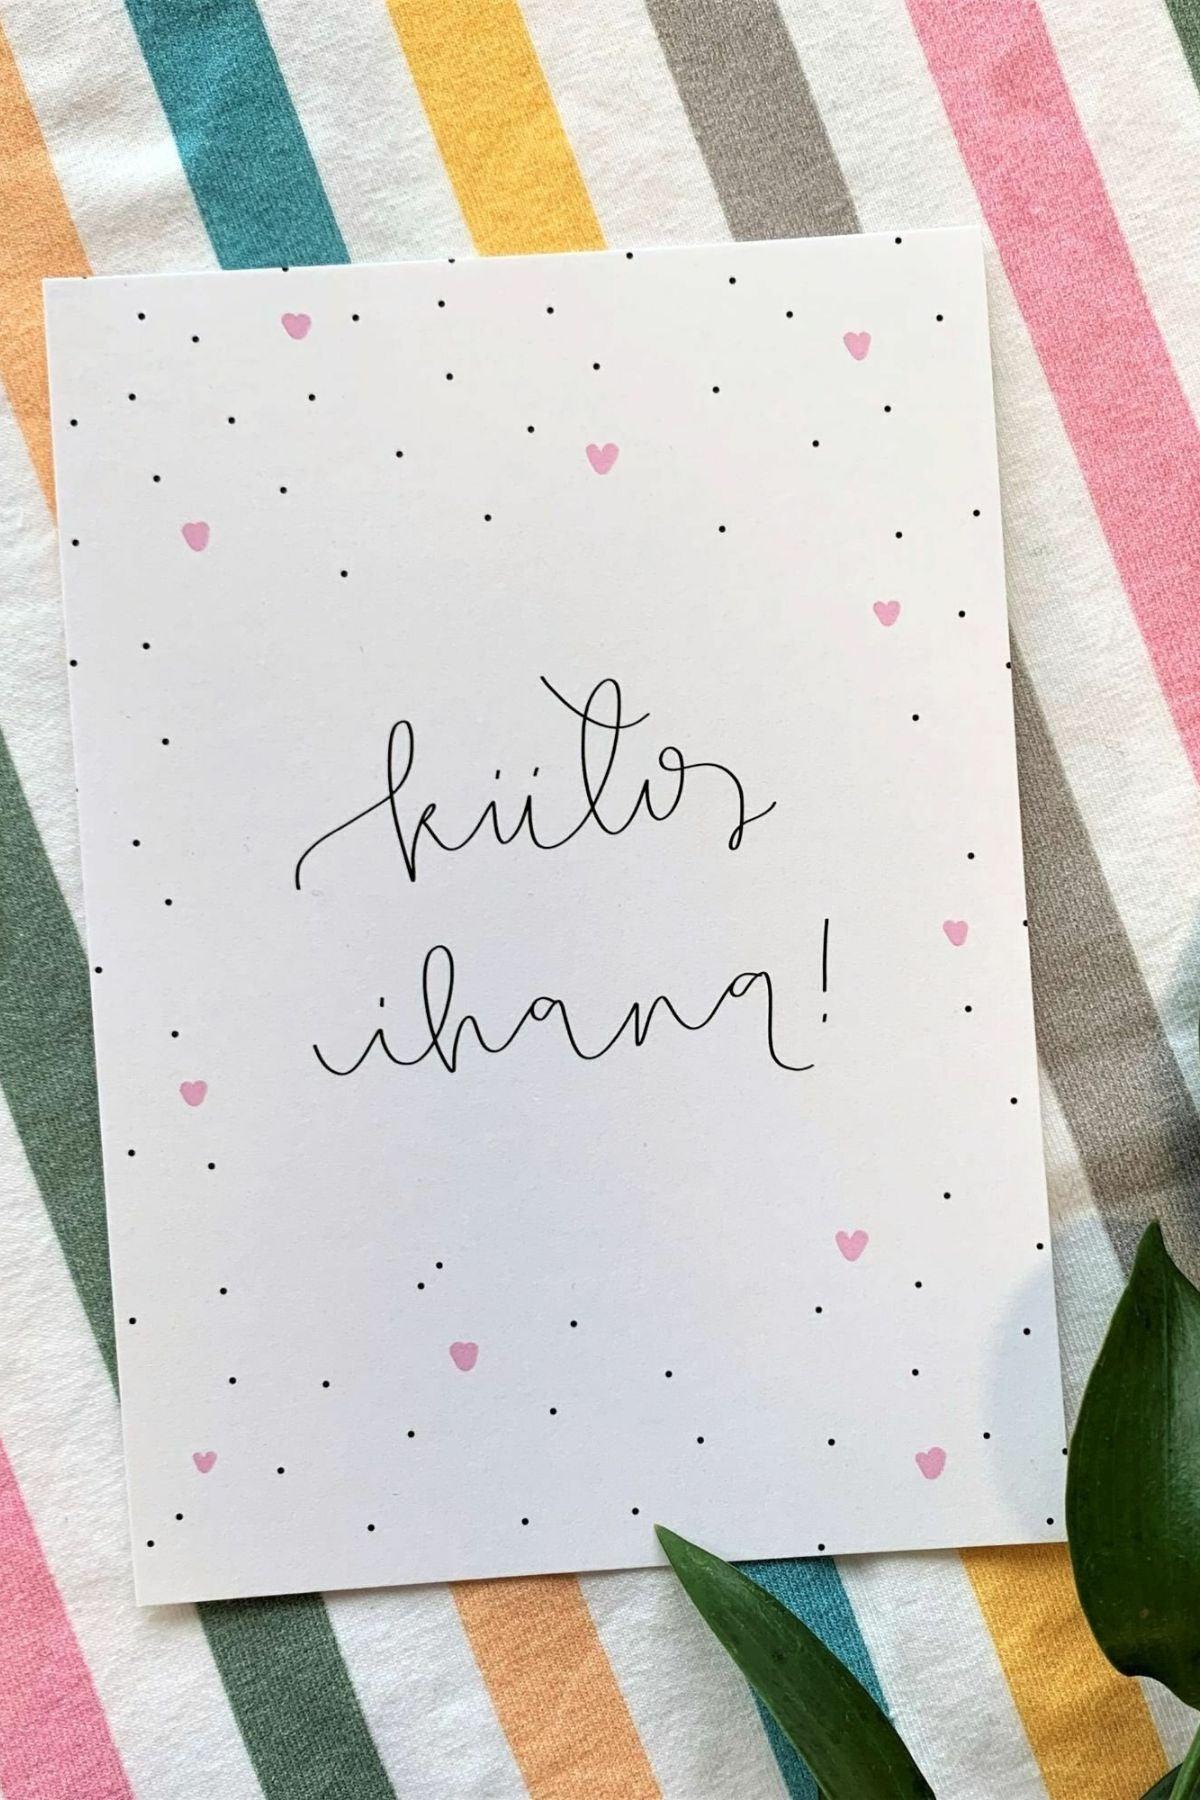 kiitos
ihana!